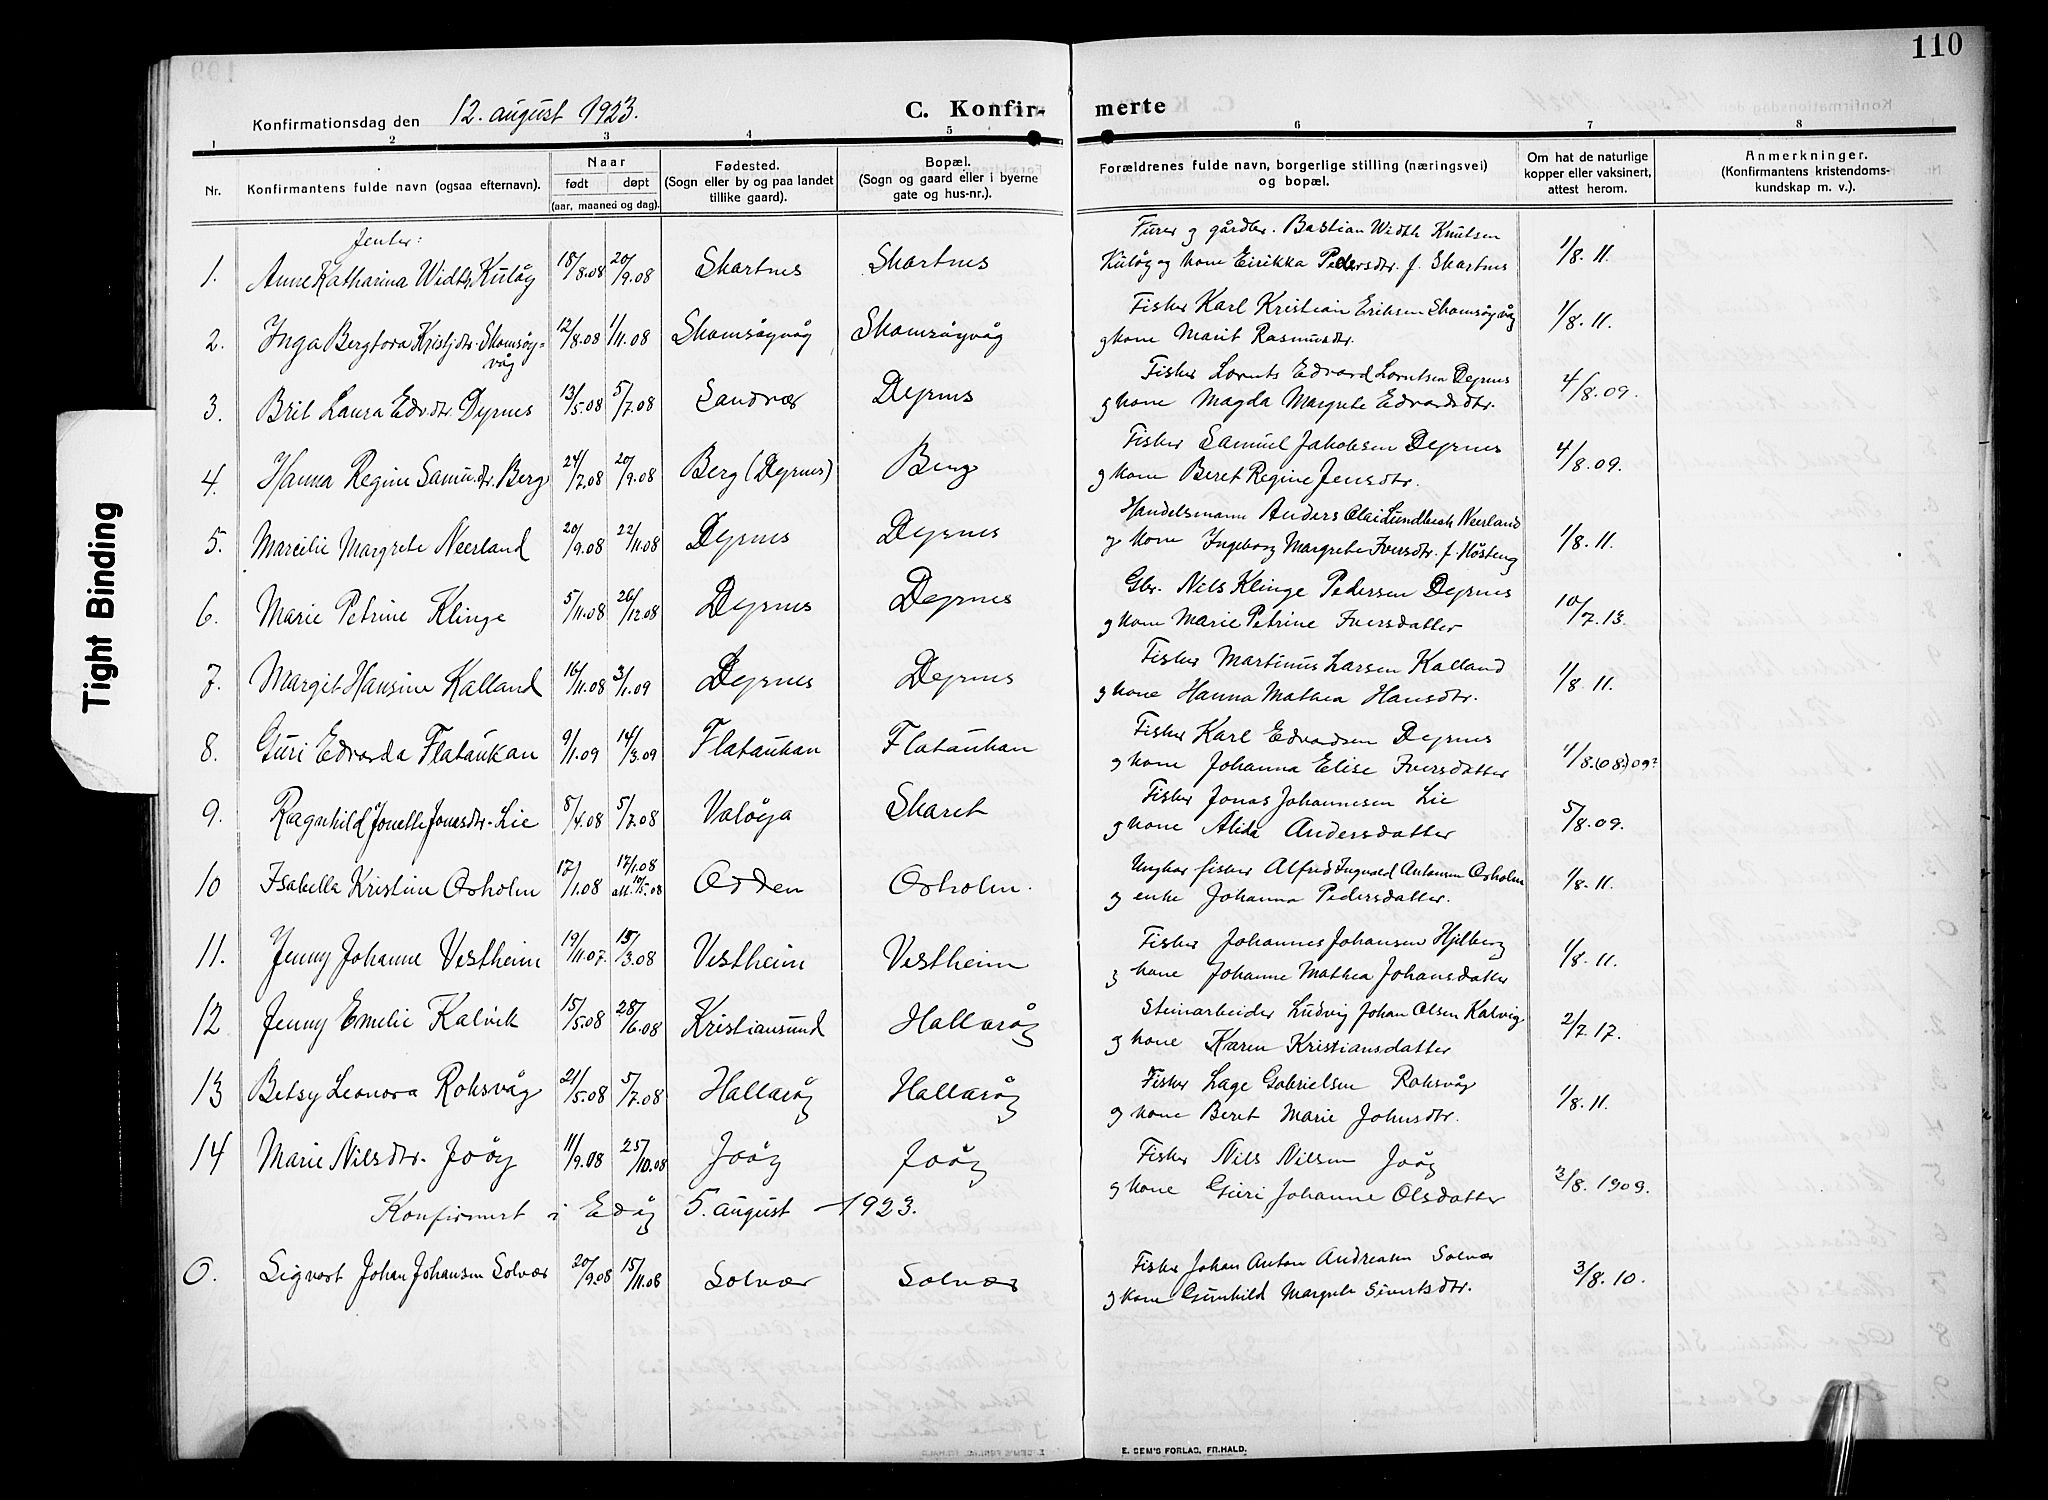 110
Konfirmationsdag den 12. august 1923. C. Konfir- merte
1 2 3 4 5 6 7 8
Nr. Konfirmantens fulde navn (ogsaa efternavn). Naar født døpt (aar, maaned og dag). Fødested. (Sogn eller by og paa landet tillike gaard). Bopæl. (Sogn og gaard eller i byerne gate og hus-nr.). Forældrenes fulde navn, borgerlige stilling (næringsvei) og bopæl. Om hat de naturlige kopper eller vaksinert, attest herom. Anmerkninger. (Konfirmantens kristendoms- kundskap m. v.).
Jenter:
1. Anne Katharina Width Kuløy 18/8.08 20/9.08 Skartnes Skartnes Furer og gårdbr. Bastian Width Knutsen 1/8. 11.
Kuløy og kone Eirikka Pedersdtr. f. Skartnes
2. Inga Bergtora Kristjdtr. Skomsøy- 12/8.08 1/11.08 Skomsøyvåg Skomsøyvåg Fisker Karl Kristian Eriksen Skomsøyvåg 1/8. 11.
våg og kone Marit Rasmusdtr.
3. Brit Laura Edv.dtr. Dyrnes 13/5.08 5/7.08 Sandvær Dyrnes Fisker Lornts Edvard Lorntsen Dyrnes 4/8.09.
og kone Magda Margrete Edvardsdtr.
4. Hanna Regine Samu.dtr. Berg 24/7.08 20/9.08 Berg (Dyrnes) Berg Fisker Samuel Jakobsen Dyrnes 4/8.09.
og kone Beret Regine Jensdtr.
5. Marcilie Margrete Neerland 20/9.08 22/11.08 Dyrnes Dyrnes Handelsmann Anders Olai Lundbech Neerland 1/8. 11.
og kone Ingeborg Margrete Iversdtr. f. Høsteng
6. Marie Petrine Klinge 5/11.08 26/12.08 Dyrnes Dyrnes Gbr. Nils Klinge Pedersen Dyrnes 10/7.13.
og kone Marie Petrine Iversdatter
7. Margit Hansine Kalland 16/11.08 3/1.09 Dyrnes Dyrnes Fisker Martinus Larsen Kalland 1/8. 11.
og kone Hanna Mathea Hansdtr.
8. Guri Edvarda Flataukan 9/1.09 14/3.09 Flataukan Flataukan Fisker Karl Edvardsen Dyrnes 4/8.(08.)09?
og kone Johanna Elise Iversdatter
9. Ragnhild Jonette Jonasdtr. Lie 8/4.08 5/7.08 Valøya Skaret Fisker Jonas Johannesen Lie 5/8.09.
og kone Alida Andersdatter
10 Isabella Kristine Orholm 17/1.08 17/1.08 10/5.08 Odden Orholm. Ungkar fisker Alfred Ingvald Antonsen Orholm 1/8. 11.
og enke Johanna Pedersdatter.
11. Jenny Johanne Vestheim 19/11.07. 15/3.08 Vestheim Vestheim Fisker Johannes Johansen Hjelberg 1/8. 11.
og kone Johanne Mathea Johansdatter
12 Jenny Emelie Kalvik 15/5.08 28/6.08 Kristiansund Hallarøy Steinarbeider Ludvig Johan Olsen Kalvig 2/7.17.
og kone Karen Kristiansdatter
13 Betsy Leonora Roksvåg 21/5.08 5/7.08 Hallarøy Hallarøy Fisker Lage Gabrielsen Roksvåg 1/8. 11.
og kone Beret Marie Johnsdtr.
14 Marie Nilsdtr. Joøy 11/9.08 25/10.08 Joøy Joøy Fisker Nils Nilsen Joøy 3/8.1909.
og kone Guri Johanne Olsdatter
Konfirmert i Edøy 5. august 1923.
0. Sigvart Johan Johansen Solvær 20/9.08 15/11.08 Solvær Solvær Fisker Johan Anton Andreasen Solvær 3/8.10.
og kone Gunhild Margrete Sivertsdtr.
E. SEM'S FORLAG, FR.HALD.
Tight Binding